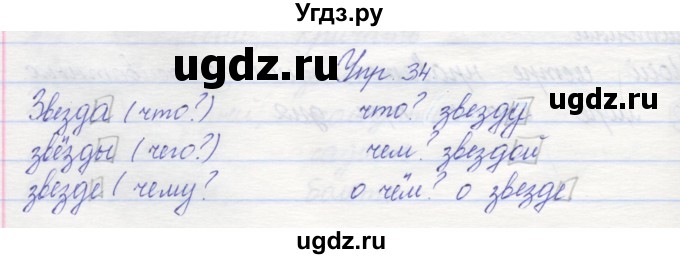 Угдз.ру
ugdz.ru
ugdz.ru
Упр. 34
Звезда (что?) что? звезду
звёзды (чего?) чем? звездой
звезде (чему? о чём? о звезде
ugdz.ru
ugdz.ru